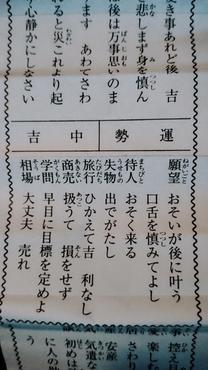 き事あれど後 吉
悲しまず身を慎ん
後は万事思いのま
ます あわてさわ
ると災これより起
心静かにしなさい
運勢 中吉
願望 おそいが後に叶う
口舌を慎みてよし
待人 おそく来る
失物 出でがたし
旅行 ひかえて吉 利なし
商売 扱うて 損をせず
学問 早日に目標を定めよ
相場 大丈夫 売れ
事控え
楽し
さわり
安産
気遣な
初めは
に人の
う